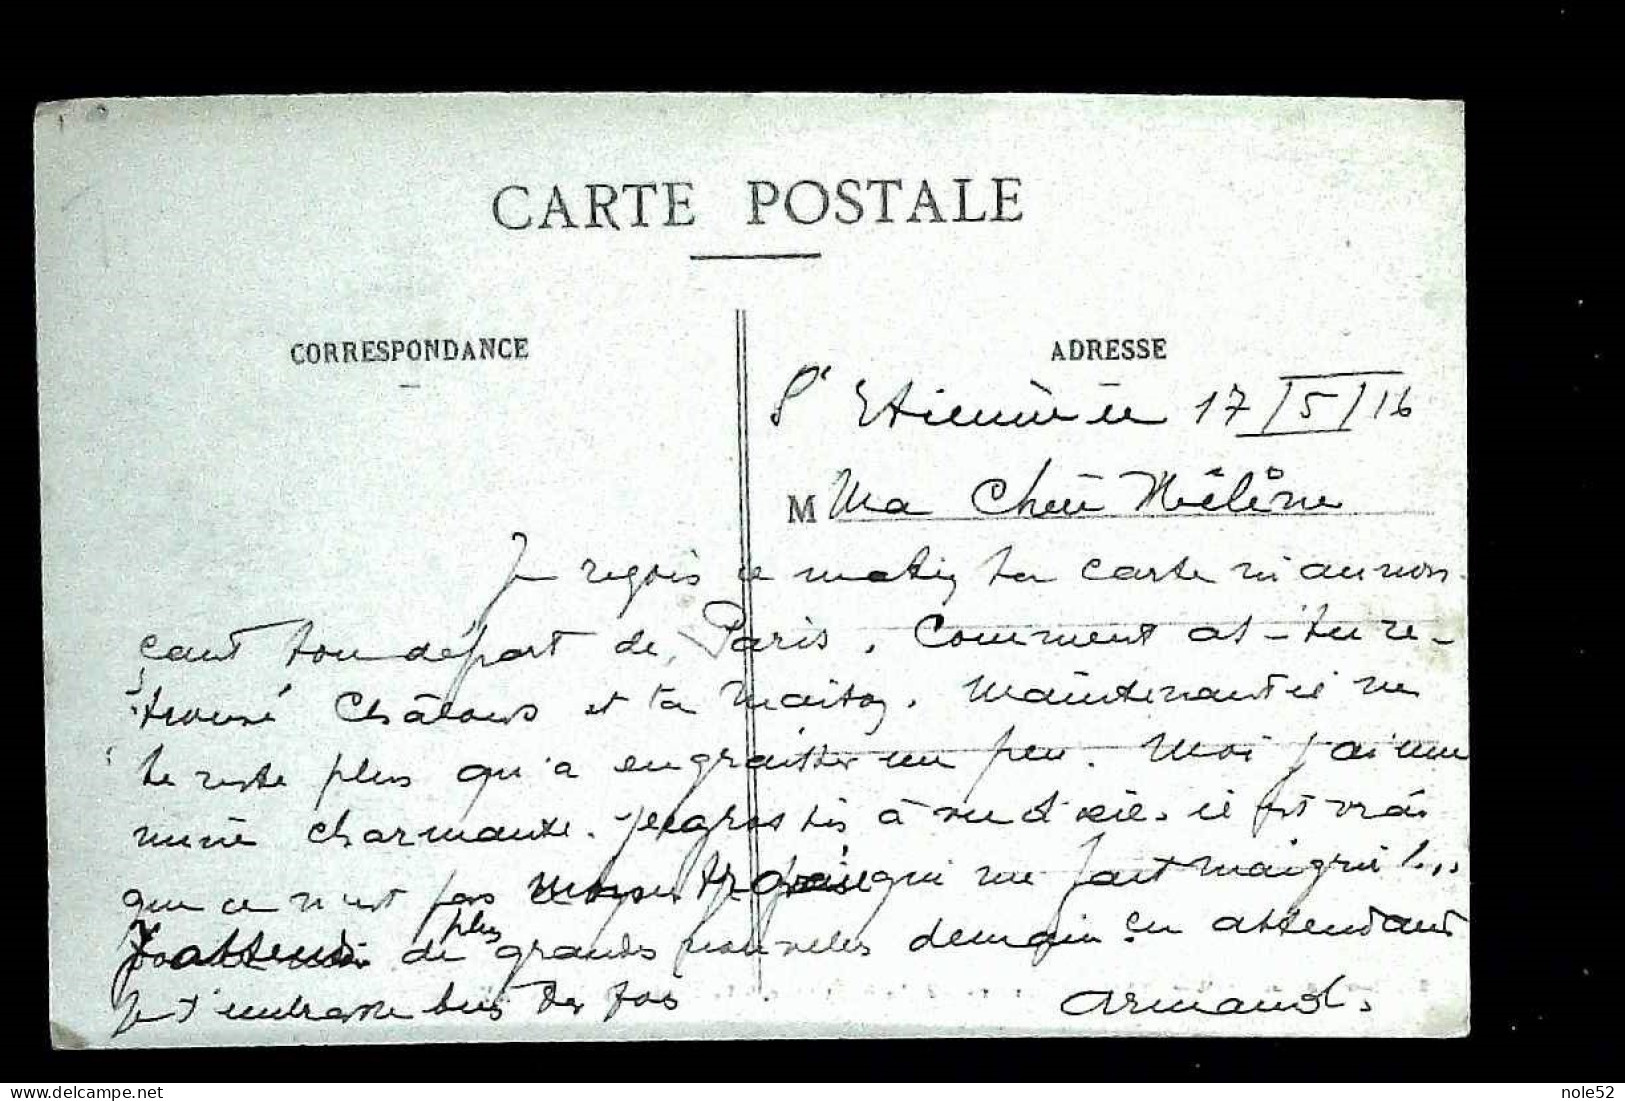 CARTE POSTALE
CORRESPONDANCE
ADRESSE
St Etienne le 17/5/16
M Ma Chère Hélène
Je reçois ce matin ta carte m'annon
cant ton départ de Paris. Comment as-tu re-
trouvé Châlons et ta maison. Maintenant il ne
te reste plus qu'à engraisser un peu. Moi j'ai une
mine charmante. J'engraisse à vue d'œil. il est vrai
que ce n'est pas qui me fait maigrir!..
J'attends de plus grandes nouvelles demain. En attendant
Je t'embrasse bien des fois
Armand.
delcampe.net
nole52